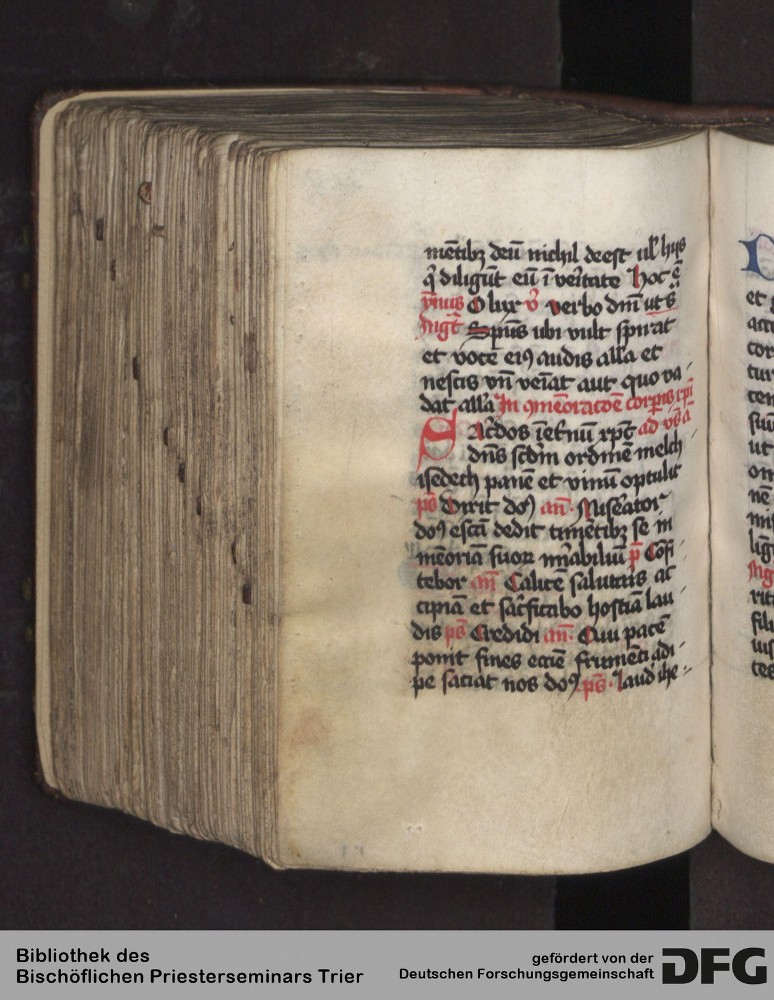 mētibꝫ deū nichil deest ul̄ hijs
q̄ diligūt eū ī veritate hoc ē
ymus O lux v̄ verbo dn̄i ut s
Mgt̄ Spūs ubi vult spirat
et vocē eiꝰ audis alla et
nescis vn̄ veniat aut quo va
dat alla In ꝯmēoracōe corpis xp̄i
ad vs̄
Sac̄dos ī et̄nū xp̄c
dn̄s scdm ordinē melch
isedech panē et vinū optulit
ps̄ Dixit doꝰ an̄. Miserator
doꝰ escā dedit timētibꝫ se in
mēoriā suoꝝ mirabiliū p̄ Cōfi
tebor an̄ Calicē salutaris ac
cipiā et sac̄ficabo hostiā lau
dis ps̄ Credidi an̄. Qui pacē
ponit fines ecc̄ie frumēti adi
pe saciat nos doꝰ ps̄. Laud ihe
et
ut
Bibliothek des
Bischöflichen Priesterseminars Trier
gefördert von der
Deutschen Forschungsgemeinschaft
DFG